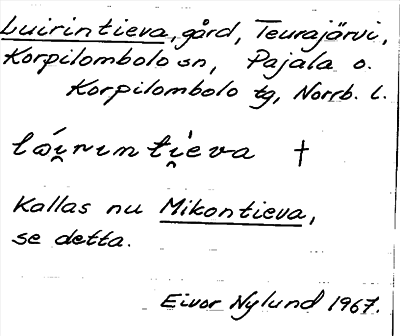 Luirintieva, gård, Teurajärvi,
Korpilombolo sn, Pajala o.
Korpilombolo tg, Norrb. l.
lúi̯rınti̯eva †
Kallas nu Mikontieva,
se detta.
Eivor Nylund 1967.